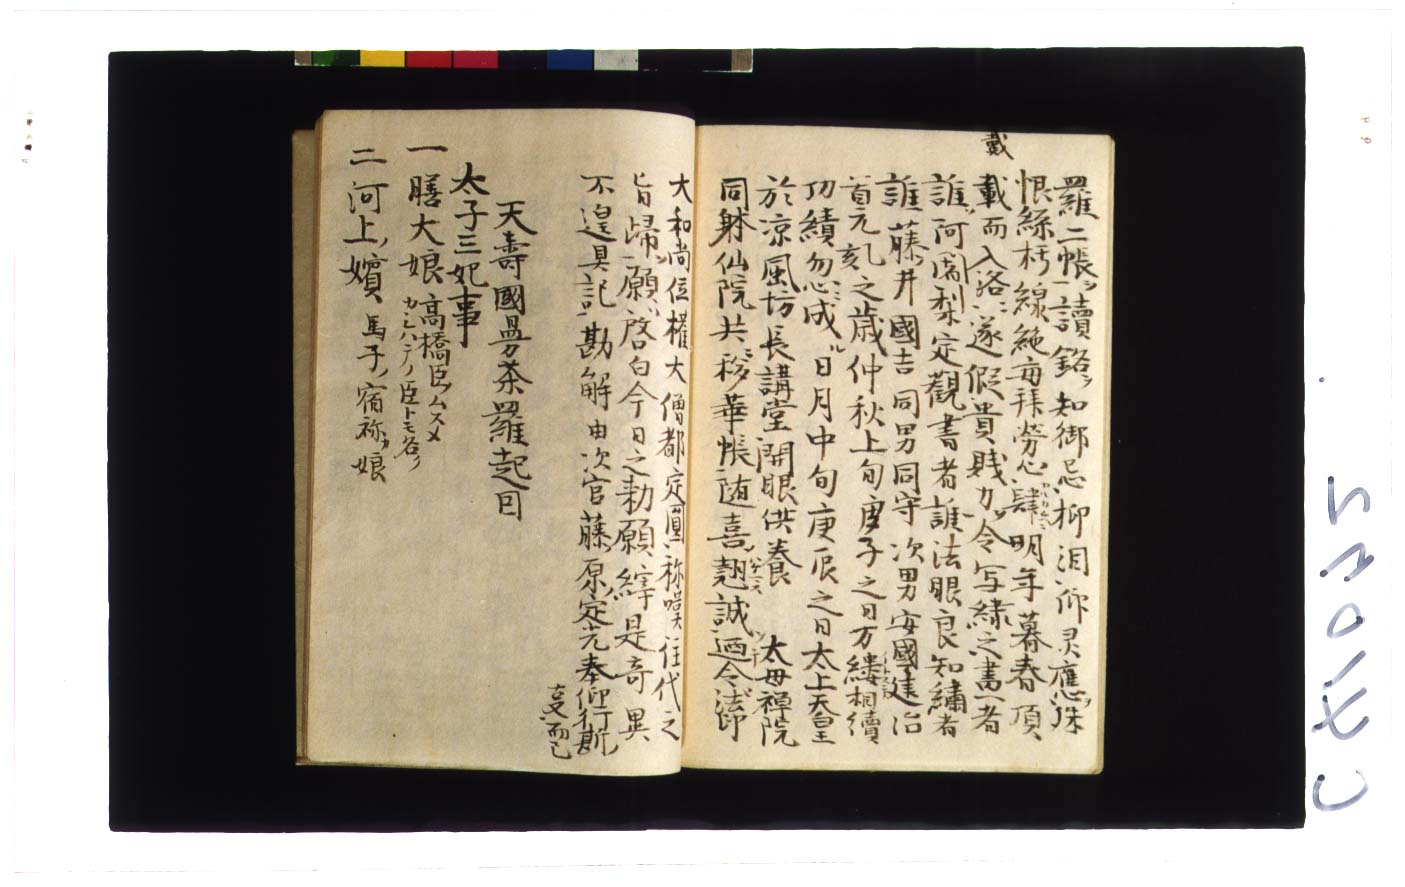 戴
羅二帳讀銘知御忌抑泪仰灵應殊
恨絲朽線絶每拜勞心肆明年暮春頂
載而入洛遂假貴賤力令写繍之畵者
誰阿闍梨定觀書者誰法眼良知繡者
誰藤井國吉同男同守次男安國建治
首元乙亥之歳仲秋上旬庚子之日万縷相續
功績忽成日月中旬庚辰之日太上天皇
於凉風坊長講堂開眼供養 太母禪院
同躰仙院共移華帳随喜翹誠廼令法印
大和尚位權大僧都定圓祢噗任代之
旨歸願啓白今日之勅願縡是奇異
不遑具記勘解由次官藤原定光奉仰行斯
支而已
天壽國曼荼羅起因
太子三妃事
一膳大娘 高橋臣ムスメ
カシハテノ臣トモ谷ノ
二河上嬪 馬子宿祢娘
CE1035